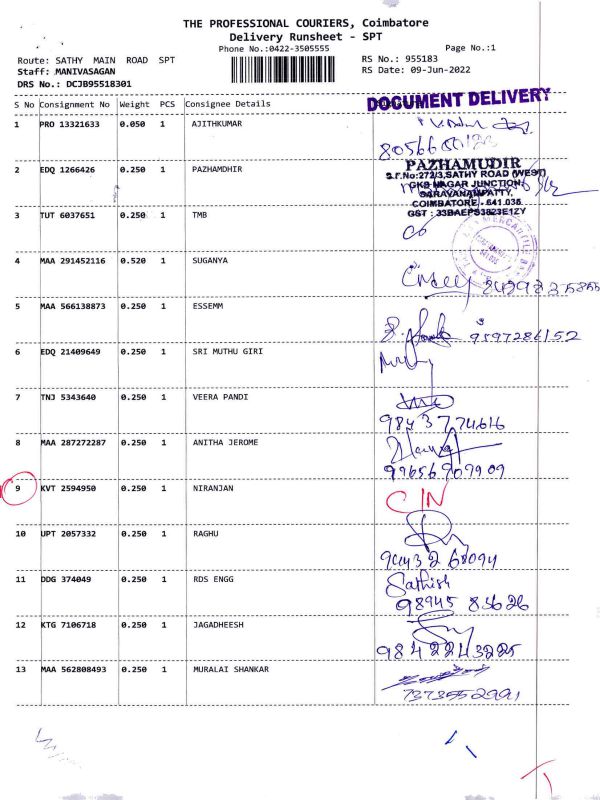 THE PROFESSIONAL COURIERS, Coimbatore
Delivery Runsheet - SPT
Phone No.:0422-3505555
Page No.:1
Route: SATHY MAIN ROAD SPT
RS No.: 955183
Staff: MANIVASAGAN
RS Date: 09-Jun-2022
DRS No.: DCJB95518301
S No Consignment No Weight PCS Consignee Details
DOCUMENT DELIVERY
1 PRO 13321633 0.050 1 AJITHKUMAR
2 EDQ 1266426 0.250 1 PAZHAMDHIR
PAZHAMUDIR
S.F.No:272/3,SATHY ROAD (WEST)
GKS NAGAR JUNCTION
SARAVANAMPATTY,
COIMBATORE - 641 035
GST : 33BAEPS3823E1ZY
3 TUT 6037651 0.250 1 TMB
4 MAA 291452116 0.520 1 SUGANYA
5 MAA 566138873 0.250 1 ESSEMM
9597286152
6 EDQ 21409649 0.250 1 SRI MUTHU GIRI
7 TNJ 5343640 0.250 1 VEERA PANDI
98437 74616
8 MAA 287272287 0.250 1 ANITHA JEROME
99656 90 99 09
9 KVT 2594950 0.250 1 NIRANJAN
CIN
10 UPT 2057332 0.250 1 RAGHU
11 DDG 374049 0.250 1 RDS ENGG
Sathish
98945 83626
12 KTG 7106718 0.250 1 JAGADHEESH
98422 43225
13 MAA 562808493 0.250 1 MURALAI SHANKAR
7373552991